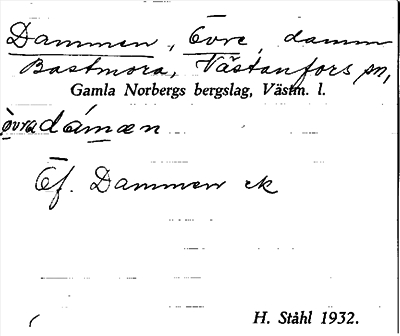 Dammen, Övre, damm
Bastmora, Västanfors sn,
Gamla Norbergs bergslag, Västm. l.
òvra dámæn
Ef. Dammen ek
H. Ståhl 1932.